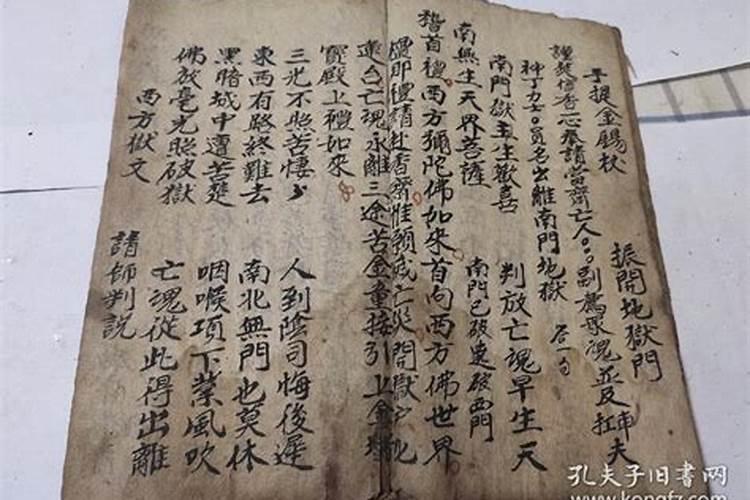 手提金錫杖 振開地獄門
謹焚信香心奉請當齋亡人○○副薦眾魂並及扛車夫
神丁力士○員名出離南門地獄 居一句
南門獄主生歡喜 判放亡魂早生天
南無生天界菩薩 南門已破連破西門
稽首禮西方彌陀佛如來首向西方佛世界
禮請赴香齋惟願亡災開獄
亡魂永離三途苦金童接引上金
寶殿上禮如來
三光不照苦悽〻 人到陰司悔後遲
東西有路終難去 南北無門也莫休
黑暗城中遭苦楚 咽喉項下業風吹
佛放毫光照破獄 亡魂從此得出離
西方獄文 請師判説
孔夫子旧書网
www.kongfz.com